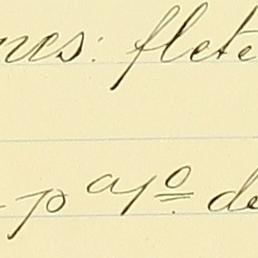 nes: flete
- p ayº de